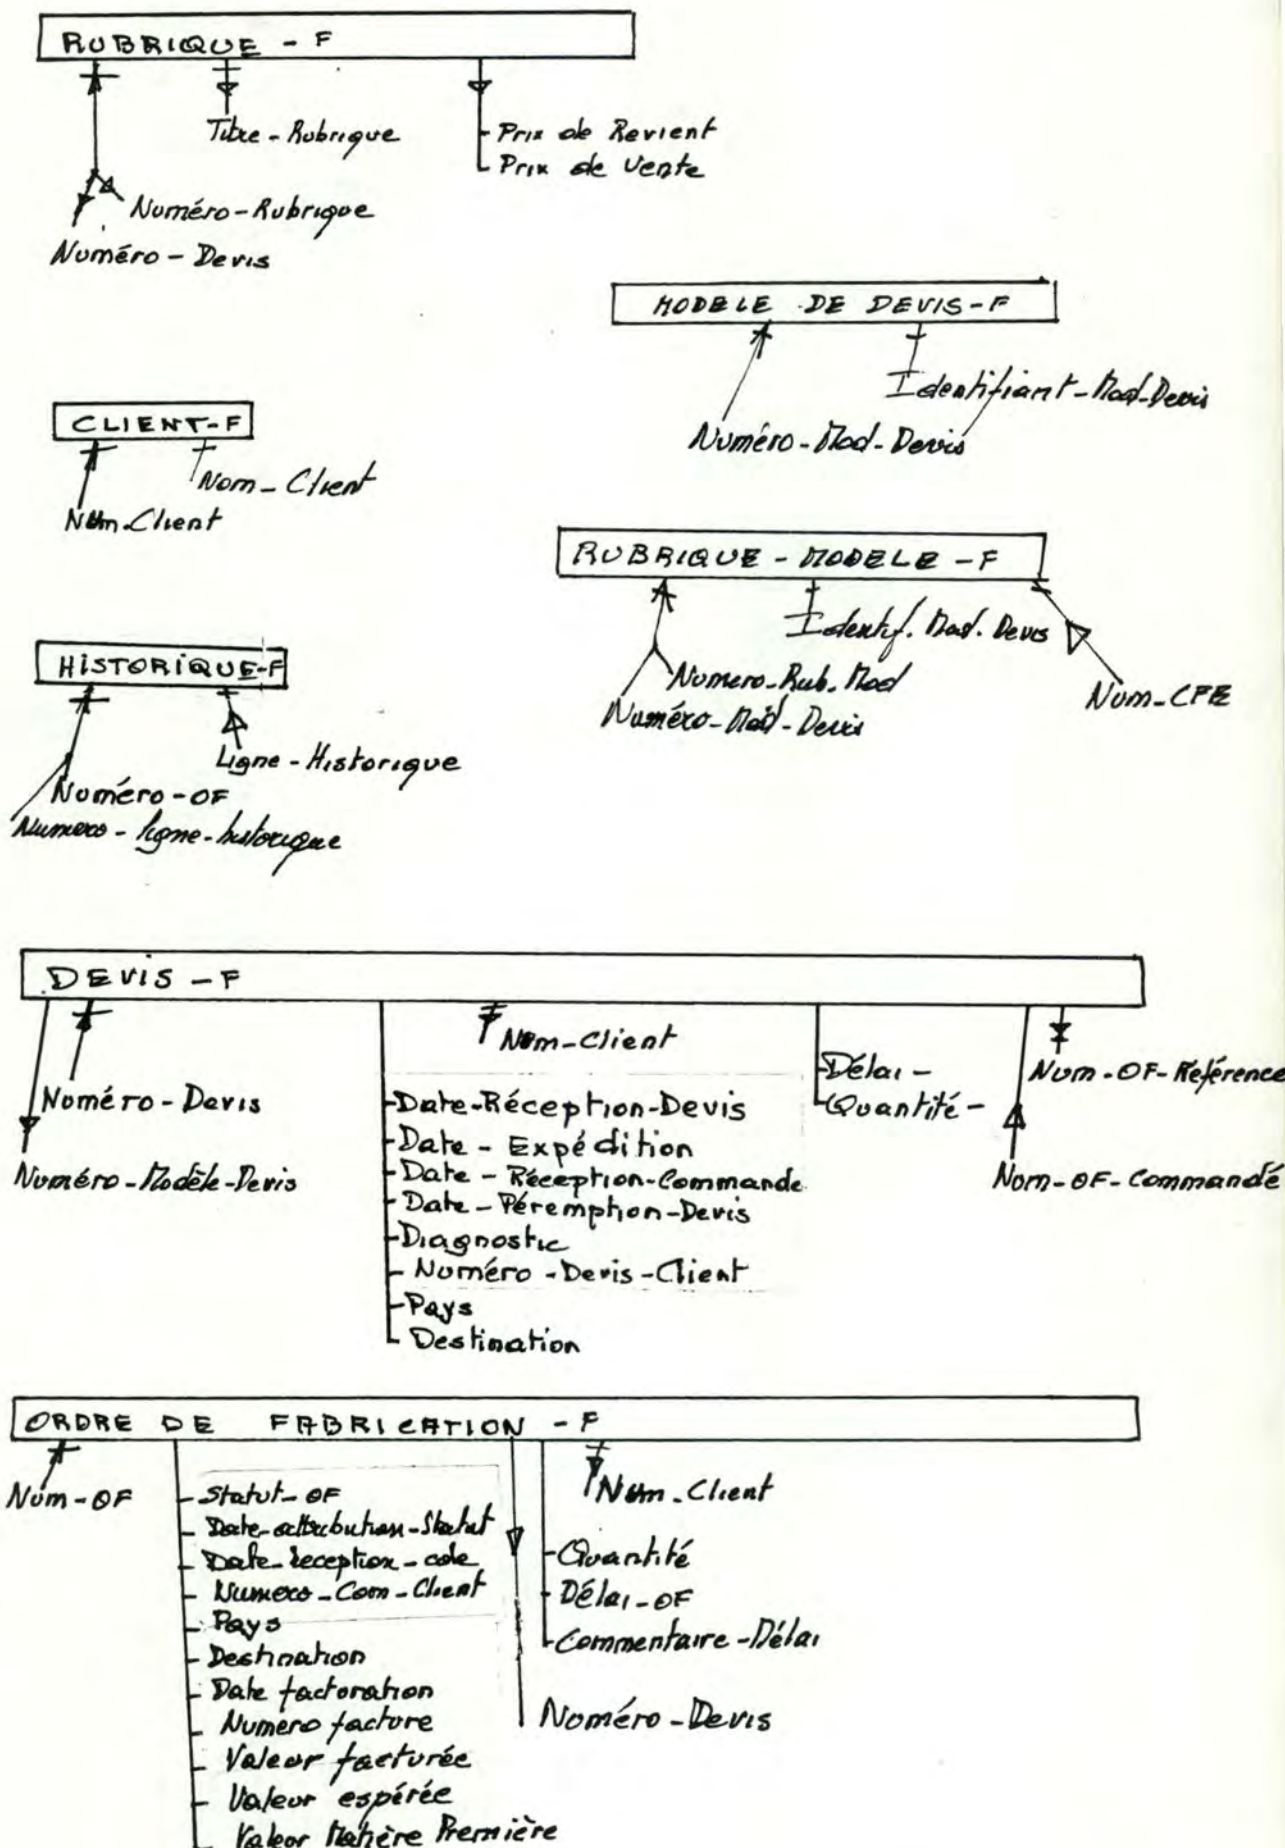 RUBRIQUE - F
Titre - Rubrique
Prix de Revient
Prix de Vente
Numéro - Rubrique
Numéro - Devis
MODELE DE DEVIS - F
Identifiant - Mod - Devis
Numéro - Mod - Devis
CLIENT - F
Nom - Client
Num - Client
RUBRIQUE - MODELE - F
Identif. Mod. Devis
Numero - Rub. Mod
Numéro - Mod - Devis
Num - CPE
HISTORIQUE - F
Ligne - Historique
Numéro - OF
Numero - ligne - historique
DEVIS - F
Num - Client
Numéro - Devis
Numéro - Modèle - Devis
Date - Réception - Devis
Date - Expédition
Date - Réception - Commande
Date - Péremption - Devis
Diagnostic
Numéro - Devis - Client
Pays
Destination
Délai -
Quantité -
Num - OF - Référence
Nom - OF - Commandé
ORDRE DE FABRICATION - F
Num - OF
Statut - OF
Date - attribution - Statut
Date - reception - cde
Numero - Com - Client
Pays
Destination
Date facturation
Numero facture
Valeur facturée
Valeur espérée
Valeur Matière Première
Num - Client
Quantité
Délai - OF
Commentaire - Délai
Numéro - Devis